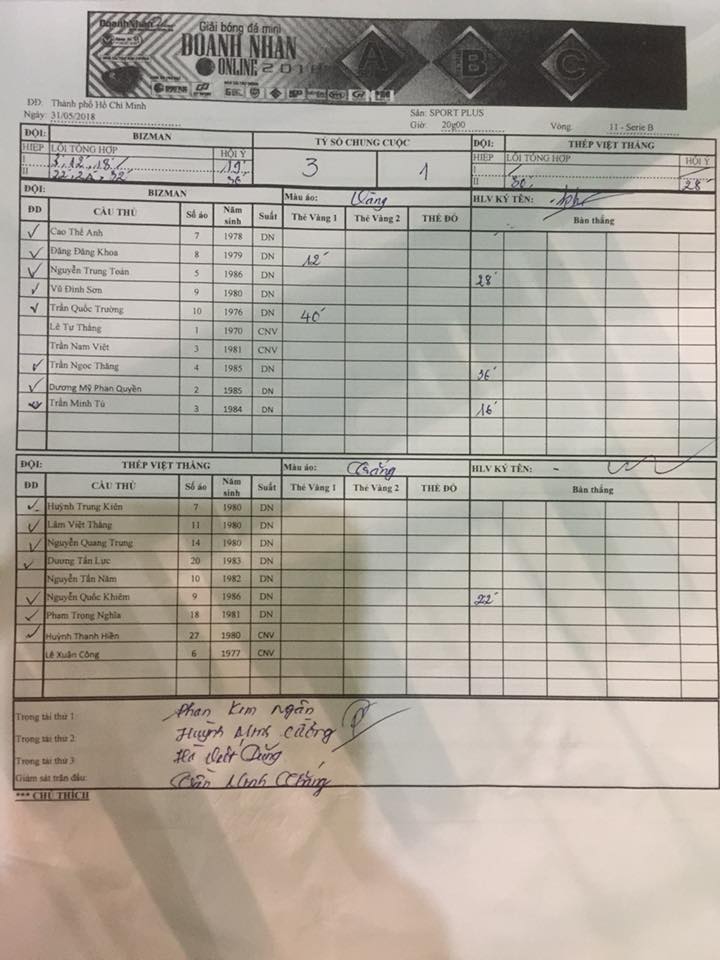 DoanhNhân
Giải bóng đá mini
DOANH NHÂN
ONLINE 2018
A B C
DĐ: Thành phố Hồ Chí Minh
Sân: SPORT PLUS
Ngày: 31/05/2018 Giờ: 20g00 Vòng: 11 - Serie B
ĐỘI: BIZMAN TỶ SỐ CHUNG CUỘC ĐỘI: THÉP VIỆT THẮNG
HIỆP LỖI TỔNG HỢP HỘI Ý 3 1 HIỆP LỖI TỔNG HỢP HỘI Ý
I 12, 18' 19'
II 22, 32' 36' II 30' 28'
ĐỘI: BIZMAN Màu áo: Vàng HLV KÝ TÊN:
ĐD CẦU THỦ Số áo Năm sinh Suất Thẻ Vàng 1 Thẻ Vàng 2 THẺ ĐỎ Bàn thắng
Cao Thế Anh 7 1978 DN
Đặng Đăng Khoa 8 1979 DN 12'
Nguyễn Trung Toán 5 1986 DN 28'
Vũ Đình Sơn 9 1980 DN
Trần Quốc Trường 10 1976 DN 40'
Lê Tư Thắng 1 1970 CNV
Trần Nam Việt 3 1981 CNV
Trần Ngọc Thăng 4 1985 DN 36'
Dương Mỹ Phan Quyền 2 1985 DN
Trần Minh Tú 3 1984 DN 16'
ĐỘI: THÉP VIỆT THẮNG Màu áo: Trắng HLV KÝ TÊN:
ĐD CẦU THỦ Số áo Năm sinh Suất Thẻ Vàng 1 Thẻ Vàng 2 THẺ ĐỎ Bàn thắng
Huỳnh Trung Kiên 7 1980 DN
Lâm Việt Thắng 11 1980 DN
Nguyễn Quang Trung 14 1980 DN
Dương Tấn Lực 20 1983 DN
Nguyễn Tấn Năm 10 1982 DN
Nguyễn Quốc Khiêm 9 1986 DN 22'
Phạm Trọng Nghĩa 18 1981 DN
Huỳnh Thanh Hiền 27 1980 CNV
Lê Xuân Công 6 1977 CNV
Trọng tài thứ 1: Phan Kim Ngân
Trọng tài thứ 2: Huỳnh Minh Cường
Trọng tài thứ 3: Hà Việt Dũng
Giám sát trận đấu: Trần Minh Thắng
*** CHÚ THÍCH